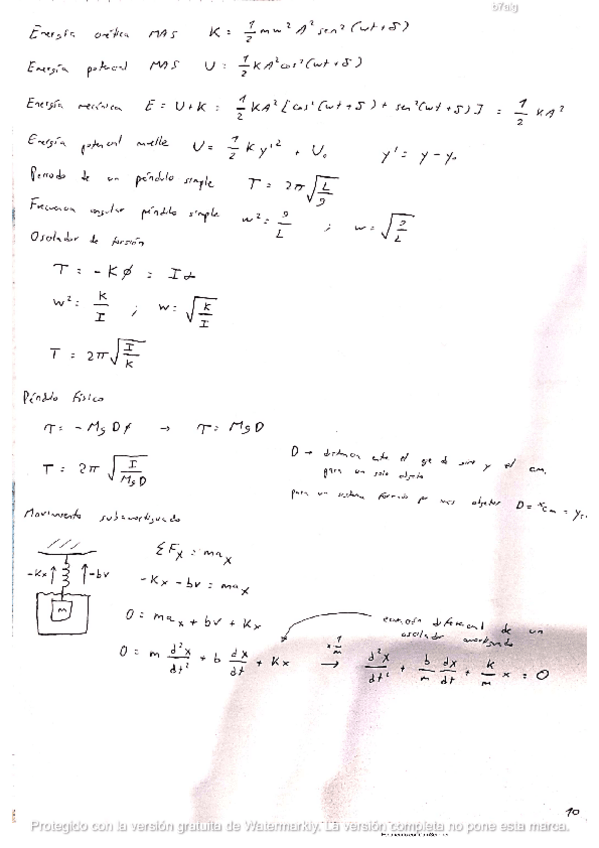 b7aig
Energía cinética MAS K = 1/2 mw² A² sen² (wt + δ)
Energía potencial MAS U = 1/2 KA² cos² (wt + δ)
Energía mecánica E = U + K = 1/2 KA² [cos² (wt + δ) + sen² (wt + δ)] = 1/2 KA²
Energía potencial muelle U = 1/2 K y'² + U₀ y' = y - y₀
Periodo de un péndulo simple T = 2π√(L/g)
Frecuencia angular péndulo simple w² = g/L ; w = √(g/L)
Oscilador de torsión
τ = -Kϕ = Iα
w² = K/I ; w = √(K/I)
T = 2π√(I/K)
Péndulo físico
τ = -MgDϕ → τ = MgD
T = 2π √(I/MgD)
D → distancia entre el eje de giro y el cm.
para un solo objeto
para un sistema formado por más objetos D = xcm = y
Movimiento subamortiguado
ΣFx = max
-Kx -bv
-Kx - bv = max
m
0 = max + bv + Kx
ecuación diferencial de un
oscilador amortiguado
0 = m d²x/dt² + b dx/dt + Kx x 1/m → d²x/dt² + b/m dx/dt + K/m x = 0
10
Protegido con la versión gratuita de Watermarkly. La versión completa no pone esta marca.